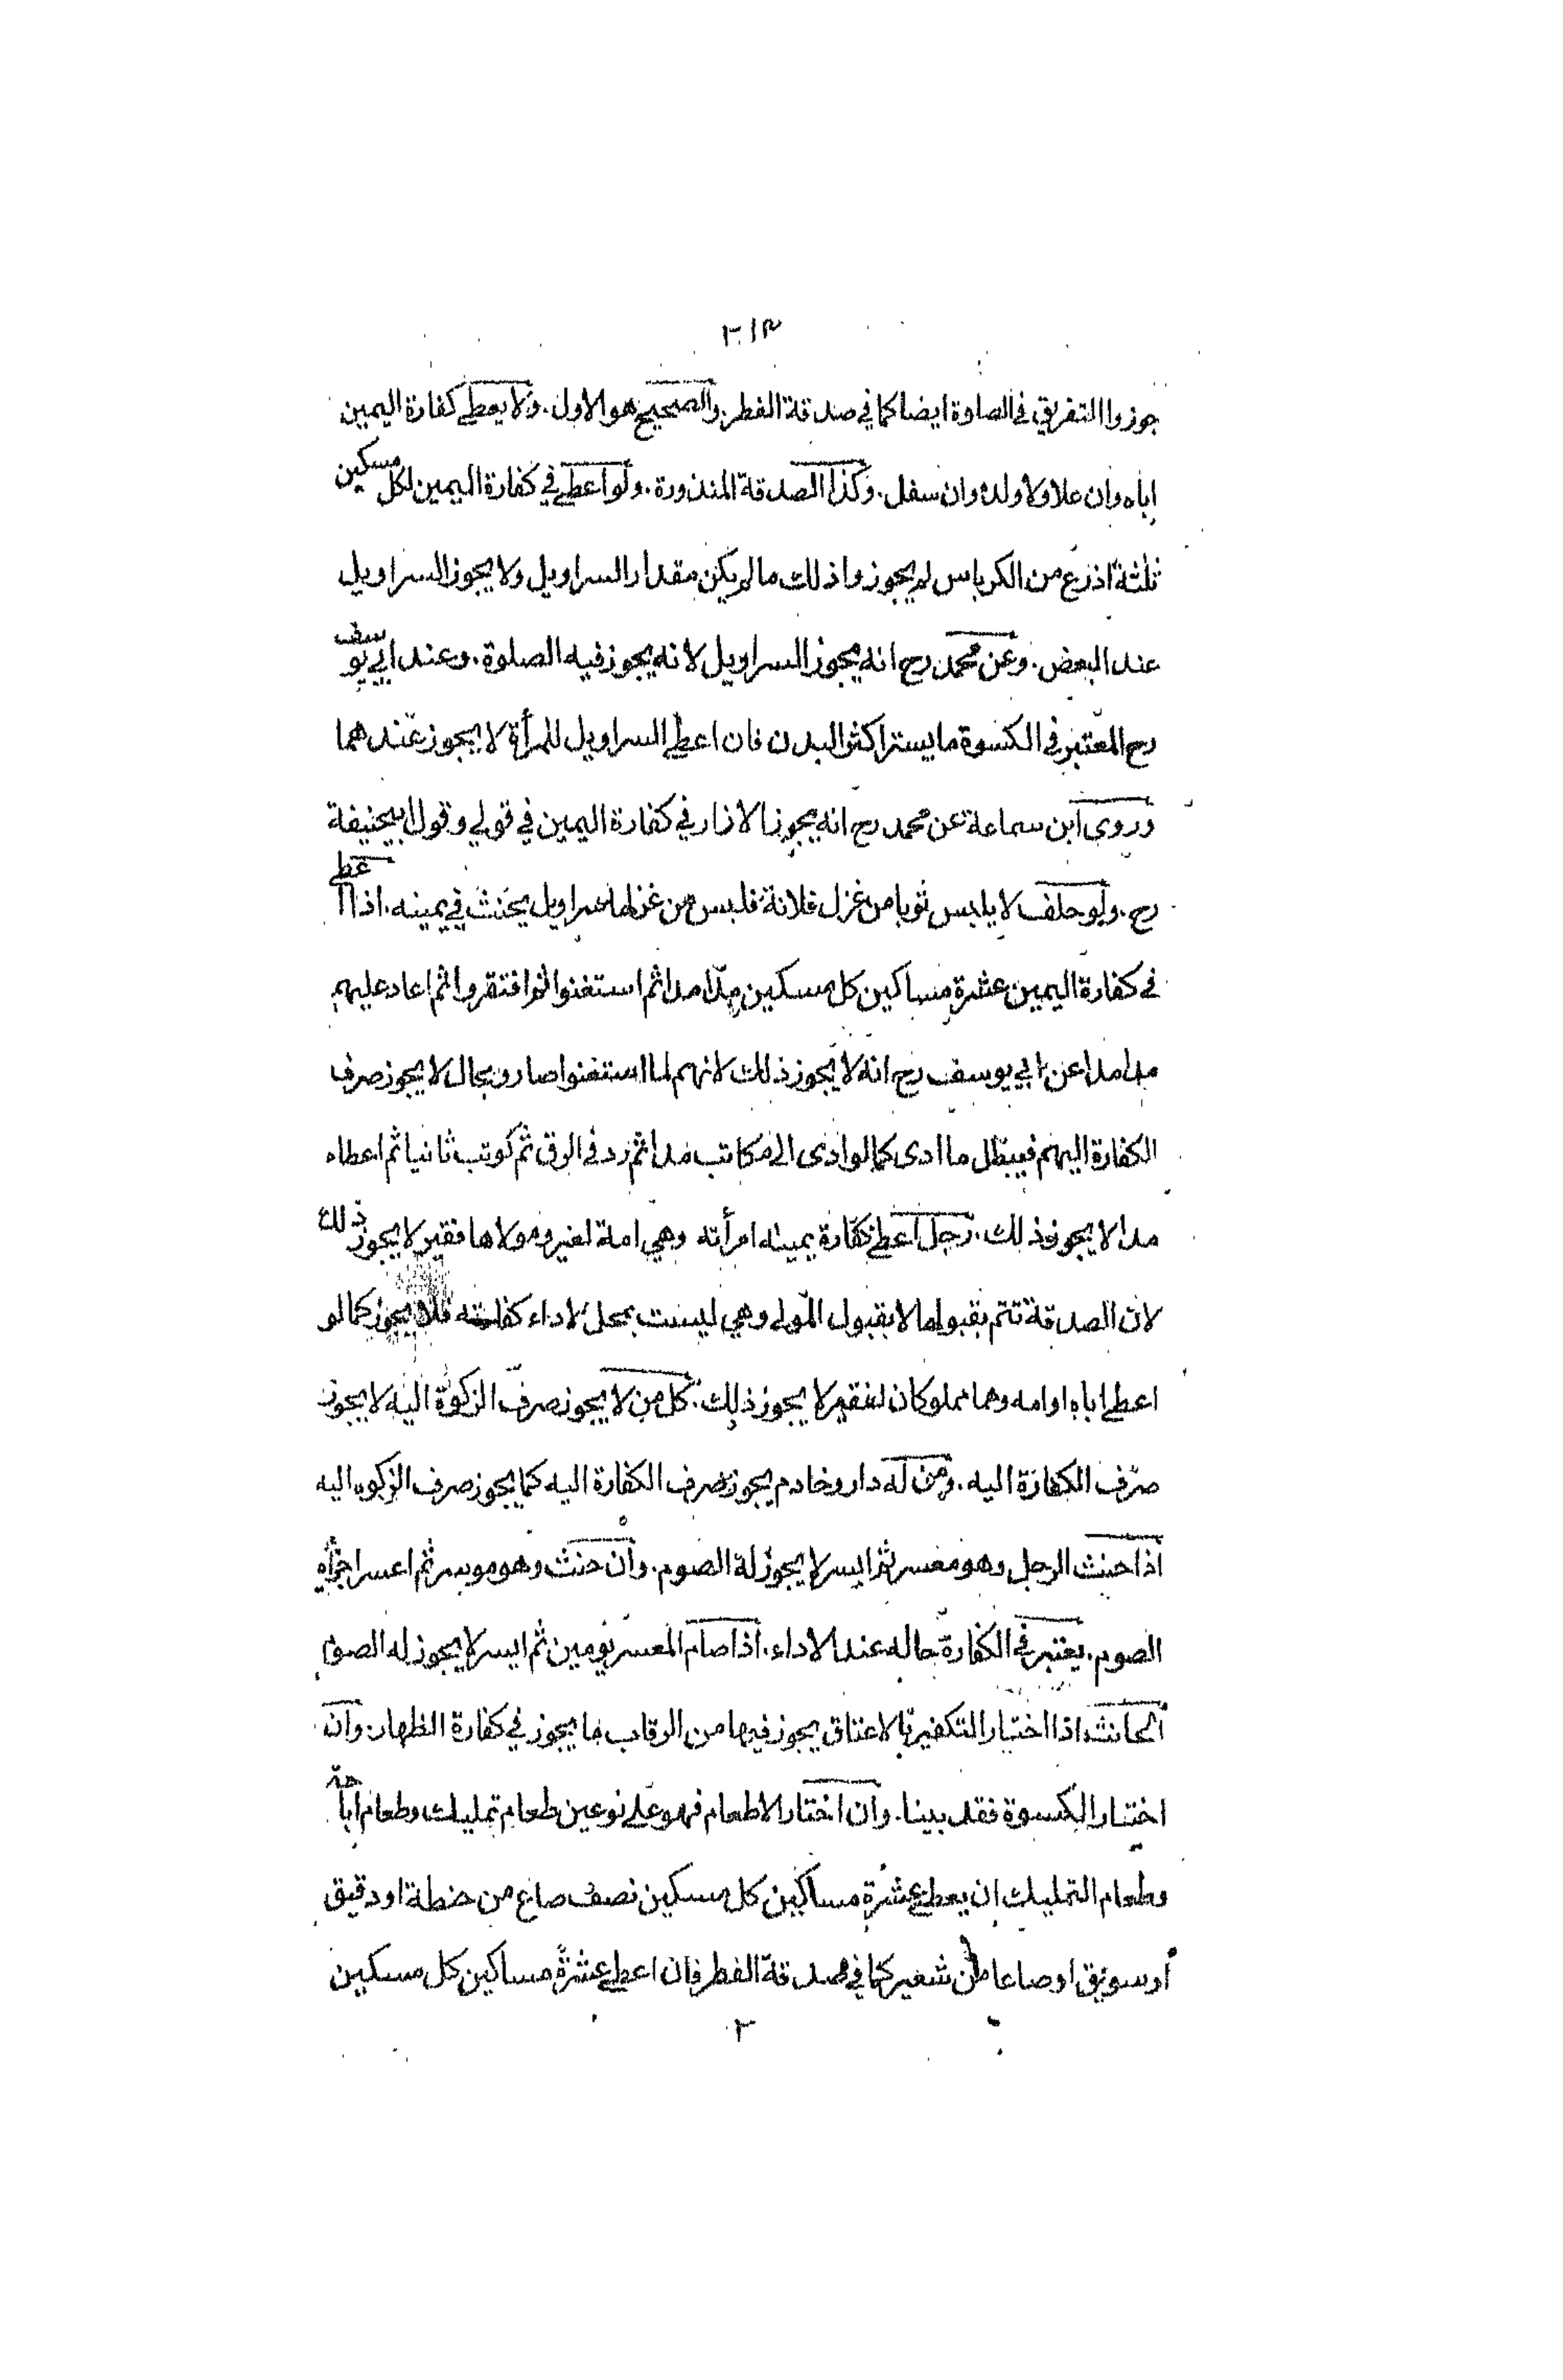 ٣١٣
جوزوا التفريق في الصلوة ايضا كما في صدقة الفطر. والصحيح هو الاول. ولا يعطى كفارة اليمين
اباه وان علا ولا ولده وان سفل. وكذا الصدقة المنذورة. ولو اعطى في كفارة اليمين لكل مسكين
ثلثة اذرع من الكرباس لم يجوز واذلك ما لم يكن مقدار السراويل ولا يجوز السراويل
عند البعض. وعن محمد رح انه يجوز السراويل لانه يجوز فيه الصلوة. وعند ابي يوسف
رح المعتبر في الكسوة ما يستر اكثر البدن فان اعطى السراويل للمرأة لا يجوز عندهما
وروى ابن سماعة عن محمد رح انه يجوز الازار في كفارة اليمين في قولي وقول ابيحنيفة
رح. ولو حلف لا يلبس ثوبا من غزل فلانة فلبس من غزلها سراويل يحنث في يمينه. اذا اعطى
في كفارة اليمين عشرة مساكين كل مسكين مدا مدا ثم استغنوا ثم افتقروا ثم اعاد عليهم
مدا مدا عن ابي يوسف رح انه لا يجوز ذلك لانهم لما استغنوا صاروا بحال لا يجوز صرف
الكفارة اليهم فيبطل ما ادى كما لو ادى الى مكاتب مدا ثم رد في الرق ثم كوتب ثانيا ثم اعطاه
مدا لا يجوز ذلك. رجل اعطى كفارة يمينه امرأته وهي امة لغيره ومولاها فقير لا يجوز ذلك
لان الصدقة تتم بقبولها لا بقبول المولى وهي ليست بمحل لاداء كفارته فلا يجوز كما لو
اعطى اباه او امه وهما مملوكان لفقير لا يجوز ذلك. كل من لا يجوز صرف الزكوة اليه لا يجوز
صرف الكفارة اليه. ومن له دار وخادم يجوز صرف الكفارة اليه كما يجوز صرف الزكوه اليه
اذا حنث الرجل وهو معسر ثم ايسر لا يجوز له الصوم. وان حنث وهو موسر ثم اعسر اجزأه
الصوم. يعتبر في الكفارة حاله عند الاداء. اذا صام المعسر يومين ثم ايسر لا يجوز له الصوم
الحانث اذا اختار التكفير بالاعتاق يجوز فيها من الرقاب ما يجوز في كفارة الظهار. وان
اختار الكسوة فقد بينا. وان اختار الاطعام فهو على نوعين طعام تمليك وطعام اباحة
وطعام التمليك ان يعطى عشرة مساكين كل مسكين نصف صاع من حنطة او دقيق
او سويق او صاعا من شعير كما في صدقة الفطر فان اعطى عشرة مساكين كل مسكين
٢